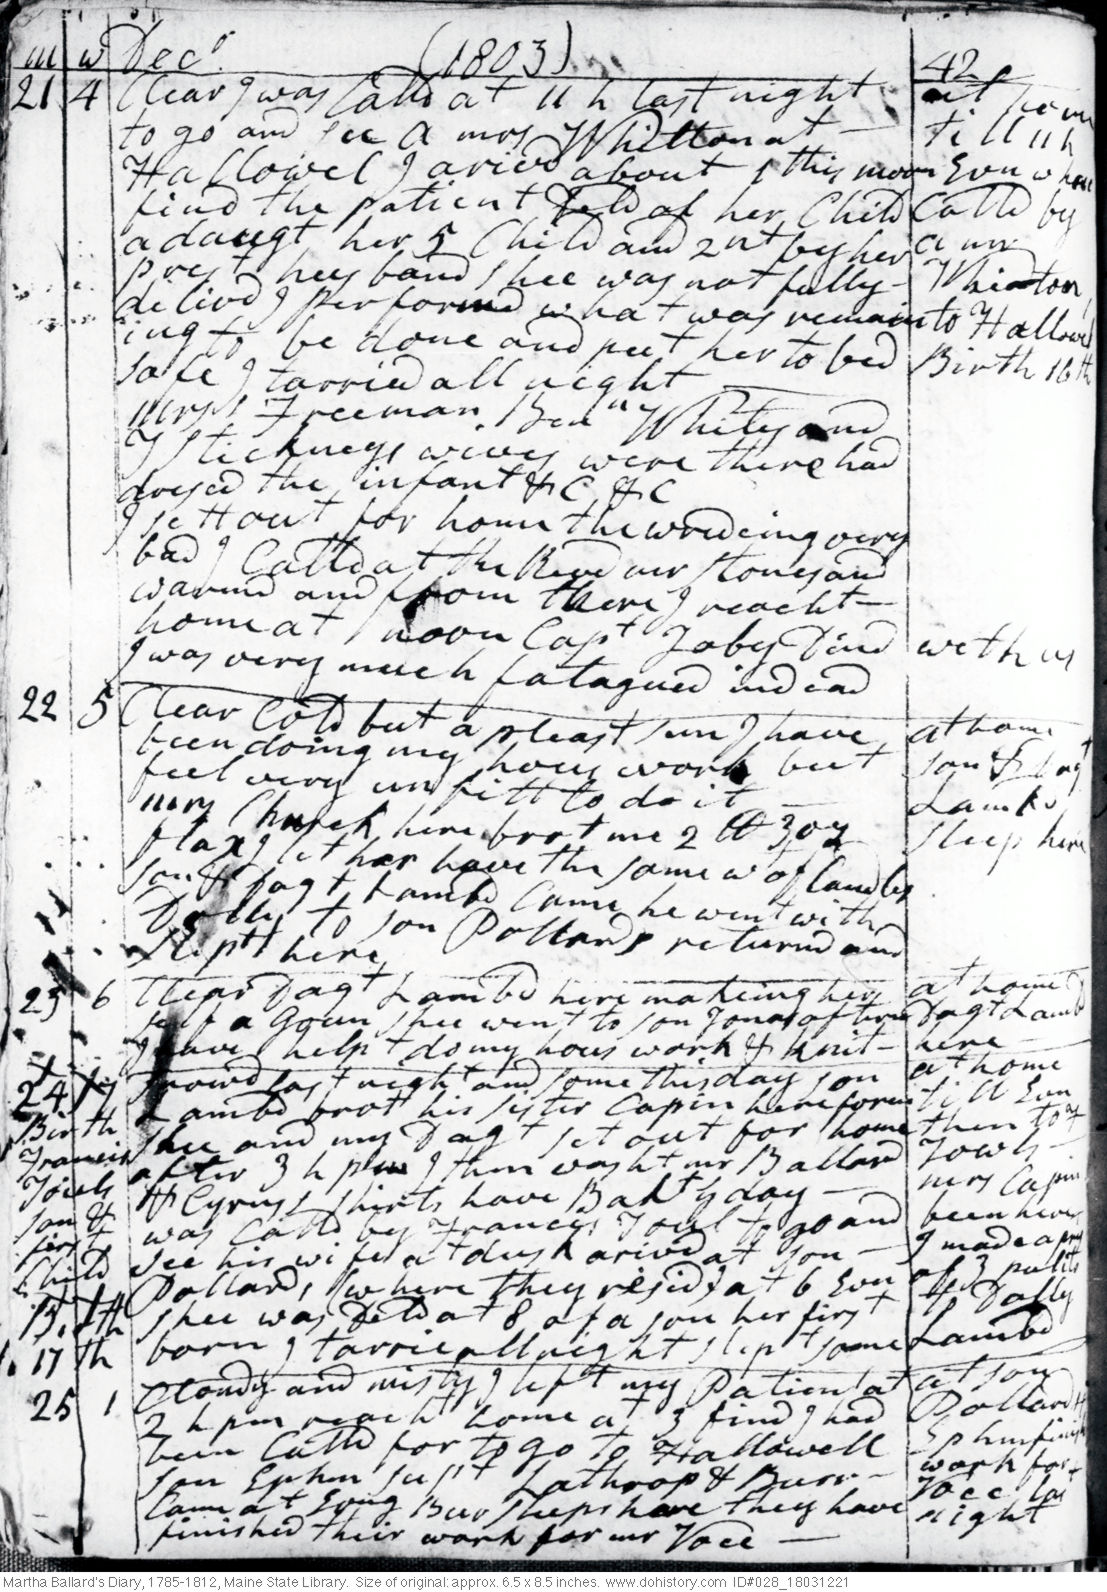 m w Decr (1803) 42
21 4 Clear I was Calld at 11 h last night
to go and see a mrs Whitton at
Hallowel I arivd about 1 this morn
find the patient Deld of her Child
a daugt her 5 Child and 2nt by her
prest husband shee was not fully
delivd I performd what was remain
ing to be done and put her to bed
safe I tarried all night
mrss Freeman Benn Whites and
J Stickneys wives were there had
dresed the infant &C &C
I sett out for home the wrideing very
bad I Calld at the Revd mr Stones and
warmd and from there I reacht
home at noon Capt Toby Dind with us
I was very much fatagued indead
at home
till 11 h
Evn when
Calld by
a mr
Whitton
to Hallowel
Birth 16th
22 5 Clear Cold but a pleast sun I have
been doing my hous work but
feel very unfitt to do it
mrs Church here brot me 2 lb 3 oz
flax I let her have the same w of Candles
son & Dagt Lambd Came he went with
Dolly to son Pollards returnd and
slept here
at home
son & Dagt
Lambd
sleep here
23 6 Clear Dagt Lambd here makeing her
self a Goun shee went to son Jonas after
I have helpt do my hous work & knit
at home
Dagt Lambd
here
24 7 snowd last night and some this day son
Lambd brot his sister Capin here forn
shee and my Dagt set out for home
after 3 h pm I then washt mr Ballard
& Cyruss shirts have Bakt y day
was Calld by Frances Towl to go and
see his wife at dusk arivd at son
Pollards where they resid at 6 Evn
shee was Deld at 8 of a son her first
born I tarrie all night slept some
Birth
Francis
Towls
son &
first
Child
Birth
17th
at home
till Evn
then to
Towls
mrs Capin
been here
I made a prest
of 3 
to Dolly
Lambd
25 1 Cloudy and misty I left my Patient at
2 h pm reacht home at 3 find I had
been Calld for to go to Hallowell
son Ephm supt Lathrop & Burr
Came at Evng Bur sleeps here they have
finished their work for mr Voce
at son
Pollards
Ephm finish
work for
Voce last
night
Martha Ballard's Diary, 1785-1812, Maine State Library. Size of original: approx. 6.5 x 8.5 inches. www.dohistory.com ID#028_18031221